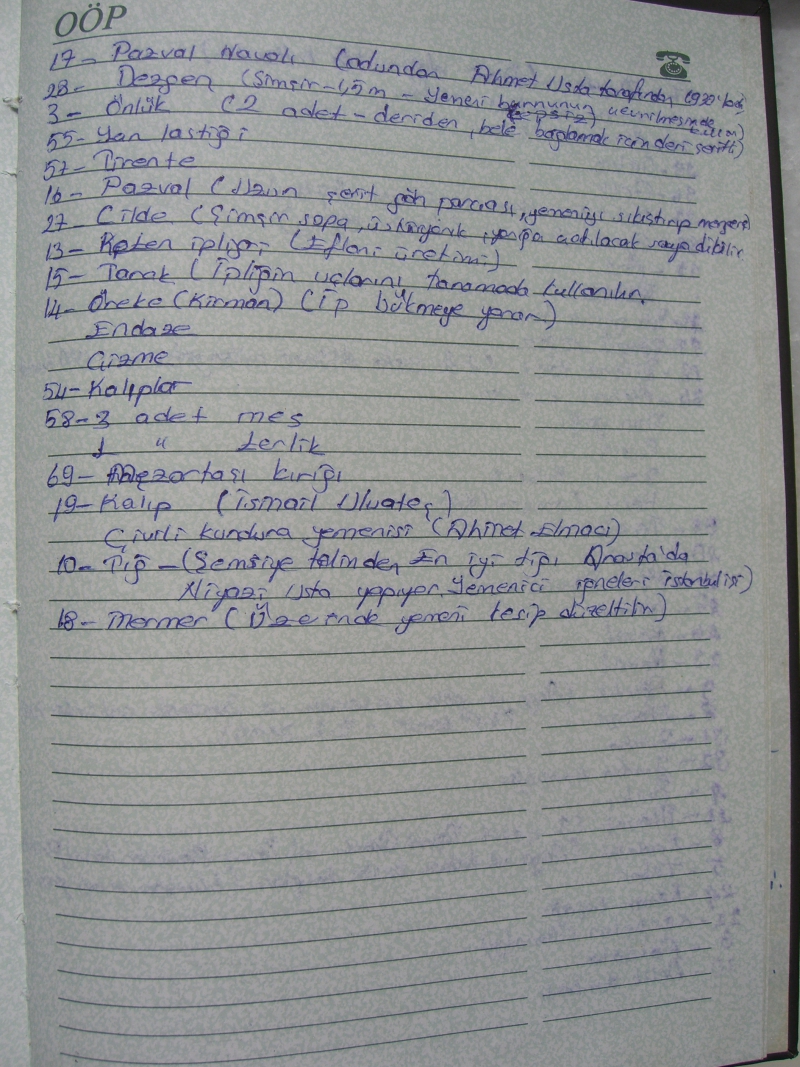 OÖP
17- Pazval Navalı (odundan Ahmet Usta tarafından 1930'
28- Dezgen (Şimşir-1,5m - yemeni burnunun çevrilmesinde
3- Önlük (2 adet-deriden, bele bağlamak için deri şeritli)
55- Yan lastiği
57- Tirente
16- Pazval (Uzun şerit gön parçası, yemeniyi sıkıştırıp
27- Cilde (Şimşir sopa, dikilir
13- Keten ipliği (Eflani üretimi)
15- Tarak (İpliğin uçlarını taramada kullanılır.
14- Öreke (Kirman) (İp bükmeye yarar)
Endaze
Çizme
54- Kalıplar
58- 3 adet mes
1 " terlik
69- Mezartaşı kırığı
19- Kalıp (İsmail Uluateş)
Çivili kundura yemenisi (Ahmet Elmacı)
10- Tığ - (Şemsiye telinden, En iyi tığı Arasta'da
Niyazi Usta yapıyor. Yemenici iğneleri istanbul işi)
18- Mermer (Üzerinde yemeni kesip düzeltilir)